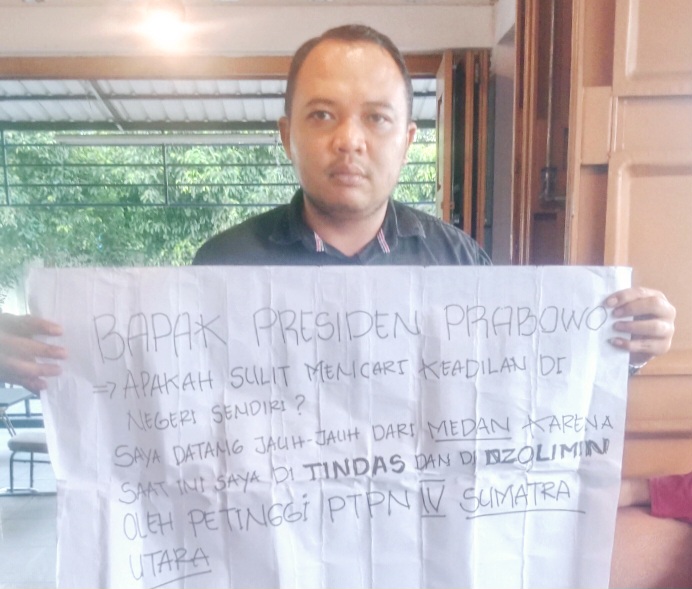 BAPAK PRESIDEN PRABOWO
⇒ APAKAH SULIT MENCARI KEADILAN DI
NEGERI SENDIRI?
SAYA DATANG JAUH-JAUH DARI MEDAN KARENA
SAAT INI SAYA DI TINDAS DAN DI DZOLIMIN
OLEH PETINGGI PTPN IV SUMATRA
UTARA